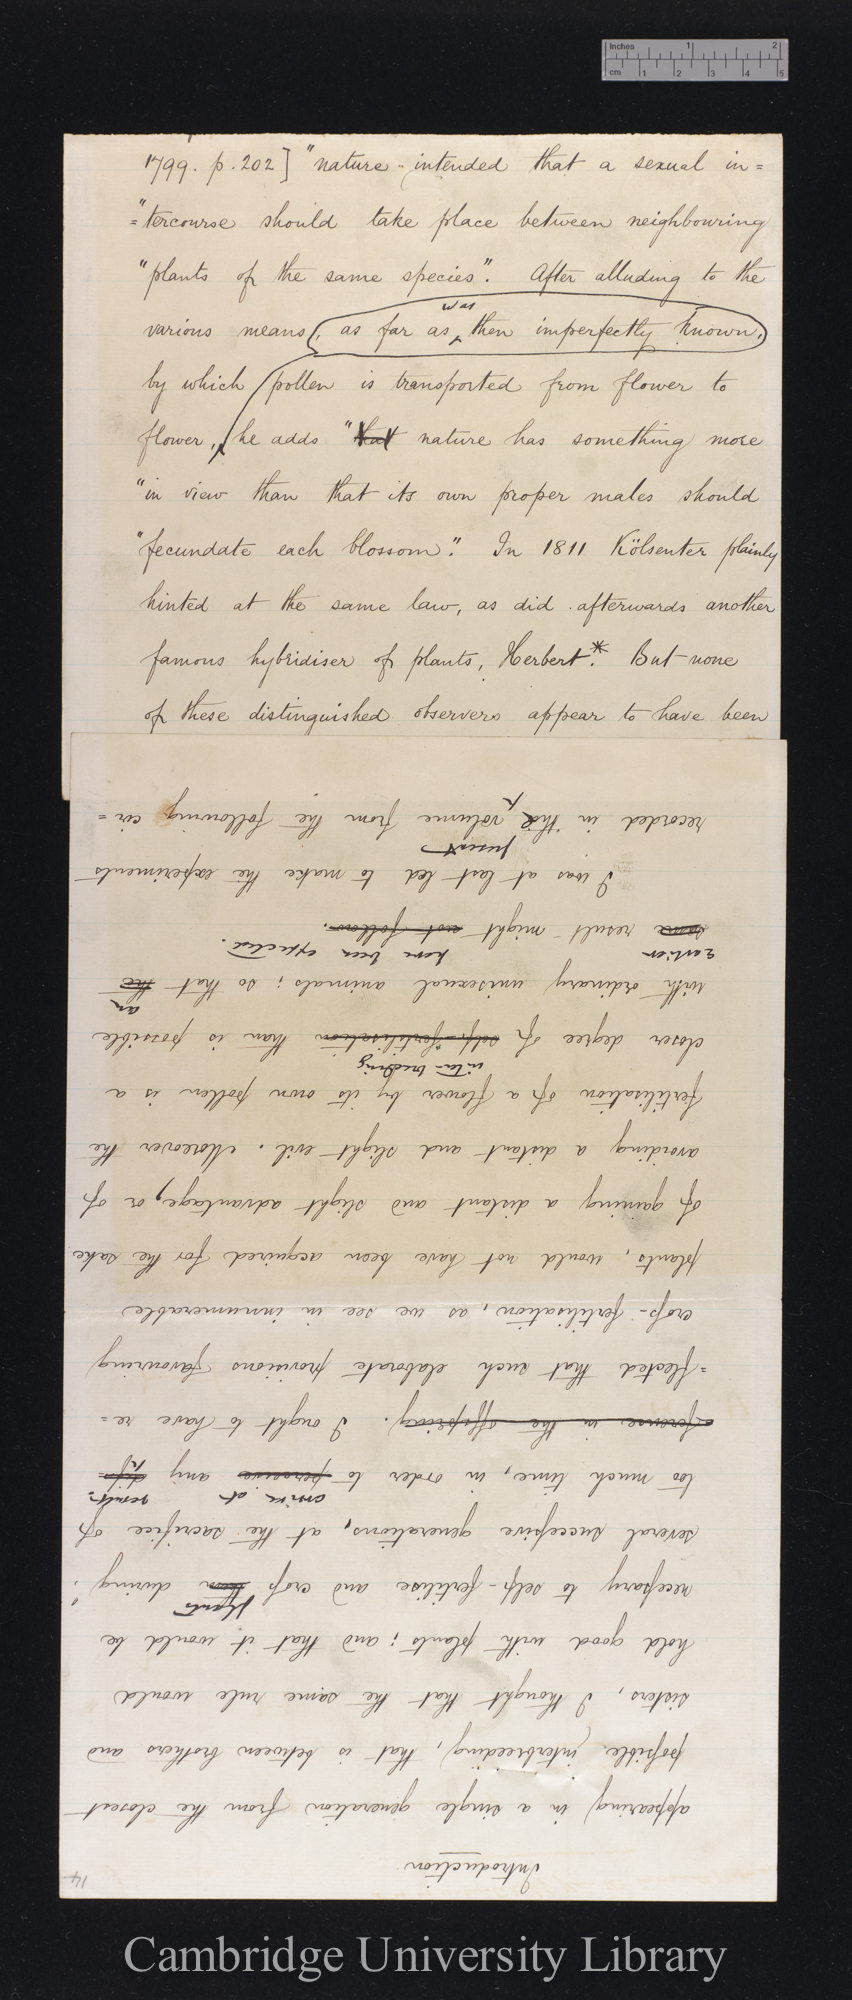 Inches 1 2
cm 1 2 3 4 5
1799. p. 202] "nature intended that a sexual in=
="tercourse should take place between neighbouring
"plants of the same species". After alluding to the
was
various means, as far as then imperfectly known,
by which pollen is transported from flower to
flower, he adds "that nature has something more
"in view than that its own proper males should
"fecundate each blossom". In 1811 Kölsenter plainly
hinted at the same law, as did afterwards another
famous hybridiser of plants, Herbert.* But none
of these distinguished observers appear to have been
14
Introduction
appearing in a single generation from the closest
possible interbreeding, that is between brothers and
sisters, I thought that the same rule would
hold good with plants; and that it would be
plants
necessary to self-fertilise and cross during
several successive generations, at the sacrifice of
arrive at results
too much time, in order to perceive any dif=
=ference in the offspring. I ought to have re=
=flected that such elaborate provisions favouring
cross-fertilisation, as we see in innumerable
plants, would not have been acquired for the sake
of gaining a distant and slight advantage, or of
avoiding a distant and slight evil. Moreover the
fertilisation of a flower by its own pollen is a
inter-breeding
closer degree of self-fertilisation than is possible
an
with ordinary unisexual animals; so that the
earlier have been expected.
same result might not follow.
I was at last led to make the experiments
present
recorded in the volume from the following cir=
Cambridge University Library